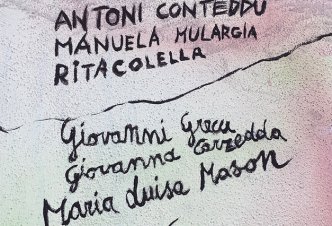 ANTONI CONTEDDU
MANUELA MULARGIA
RITA COLELLA
Giovanni Grecu
Giovanna Carzedda
Maria Luisa Mason